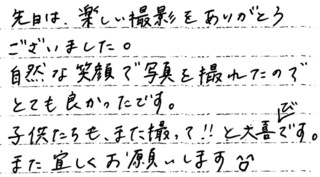 先日は、楽しい撮影をありがとう
ございました。
自然な笑顔で写真を撮れたので
とても良かったです。
子供たちも、また撮って!!と大喜びです。
また宜しくお願いします